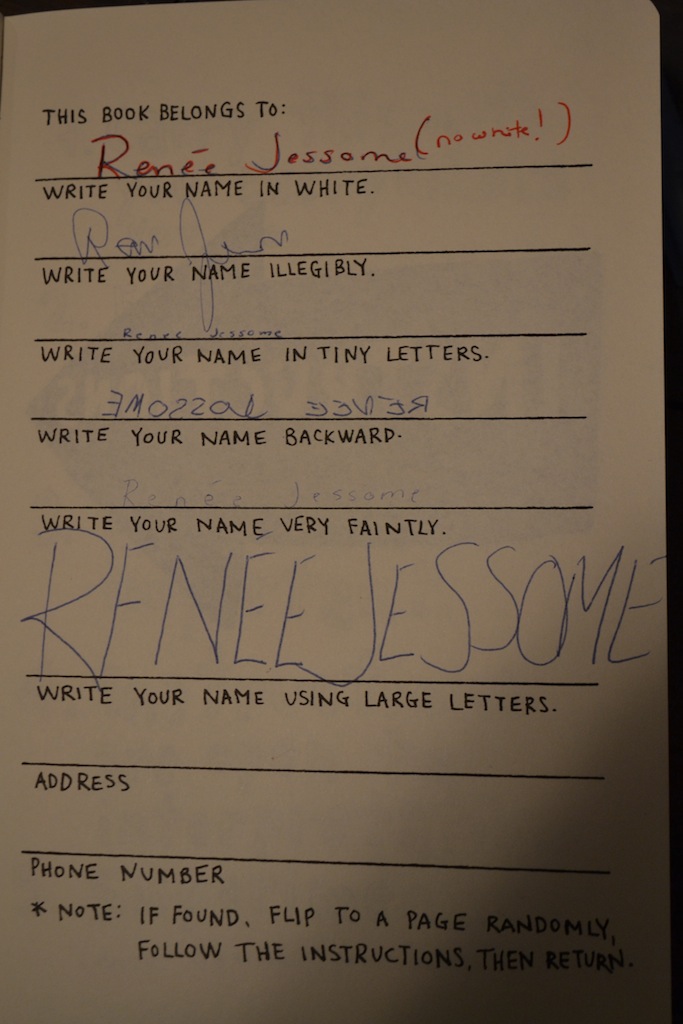 THIS BOOK BELONGS TO:
Renée Jessome (no white!)
WRITE YOUR NAME IN WHITE.
WRITE YOUR NAME ILLEGIBLY.
Renee Jessome
WRITE YOUR NAME IN TINY LETTERS.
EMOSSOJ EENER
WRITE YOUR NAME BACKWARD.
Renée Jessome
WRITE YOUR NAME VERY FAINTLY.
RENÉE JESSOME
WRITE YOUR NAME USING LARGE LETTERS.
ADDRESS
PHONE NUMBER
* NOTE: IF FOUND, FLIP TO A PAGE RANDOMLY,
FOLLOW THE INSTRUCTIONS, THEN RETURN.